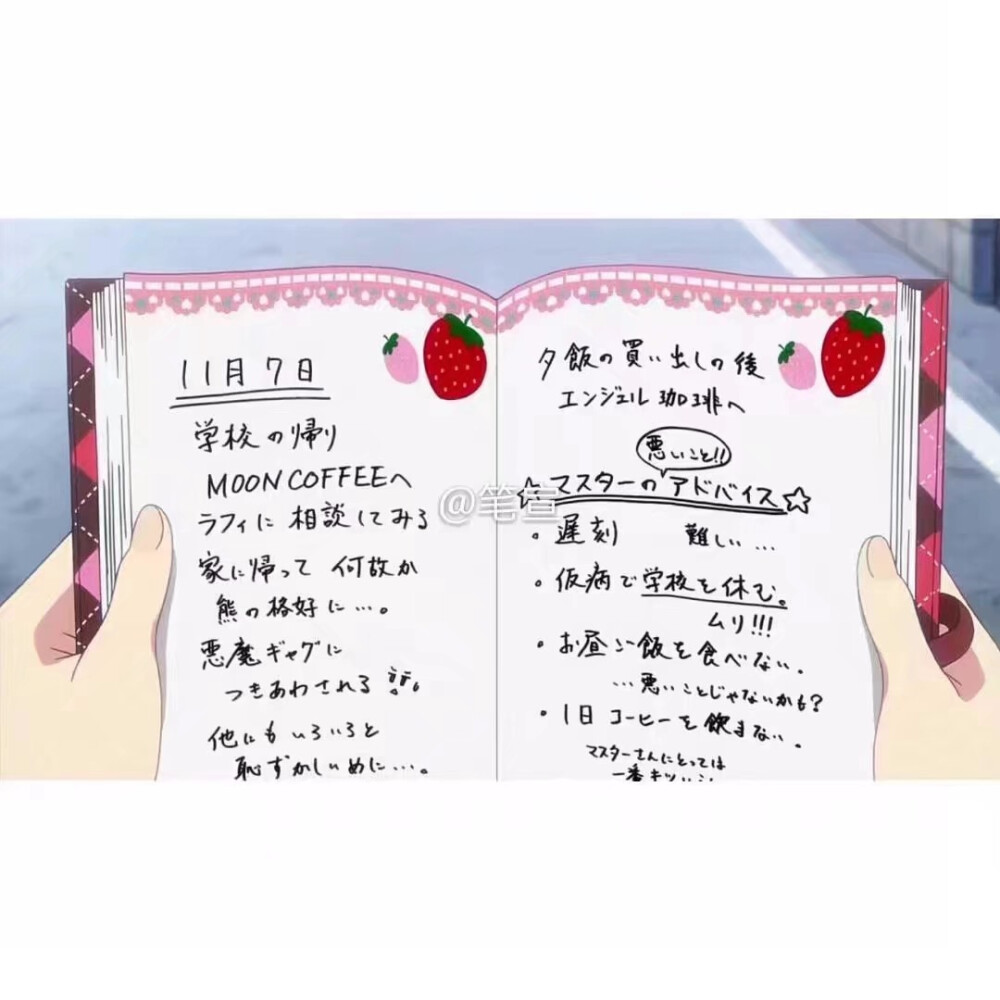 11月7日
学校の帰り
MOON COFFEEへ
ラフィに相談してみる
家に帰って 何故か
熊の格好に…。
悪魔ギャグに
つきあわされる
他にもいろいろと
恥ずかしいめに…。
夕飯の買い出しの後
エンジェル珈琲へ
悪いこと!!
☆マスターのアドバイス☆
・遅刻 難しい…
・仮病で学校を休む。
ムリ!!!
・お昼ご飯を食べない。
…悪いことじゃないかも?
・1日コーヒーを飲まない。
マスターさんにとっては
一番キツい
@笔宣